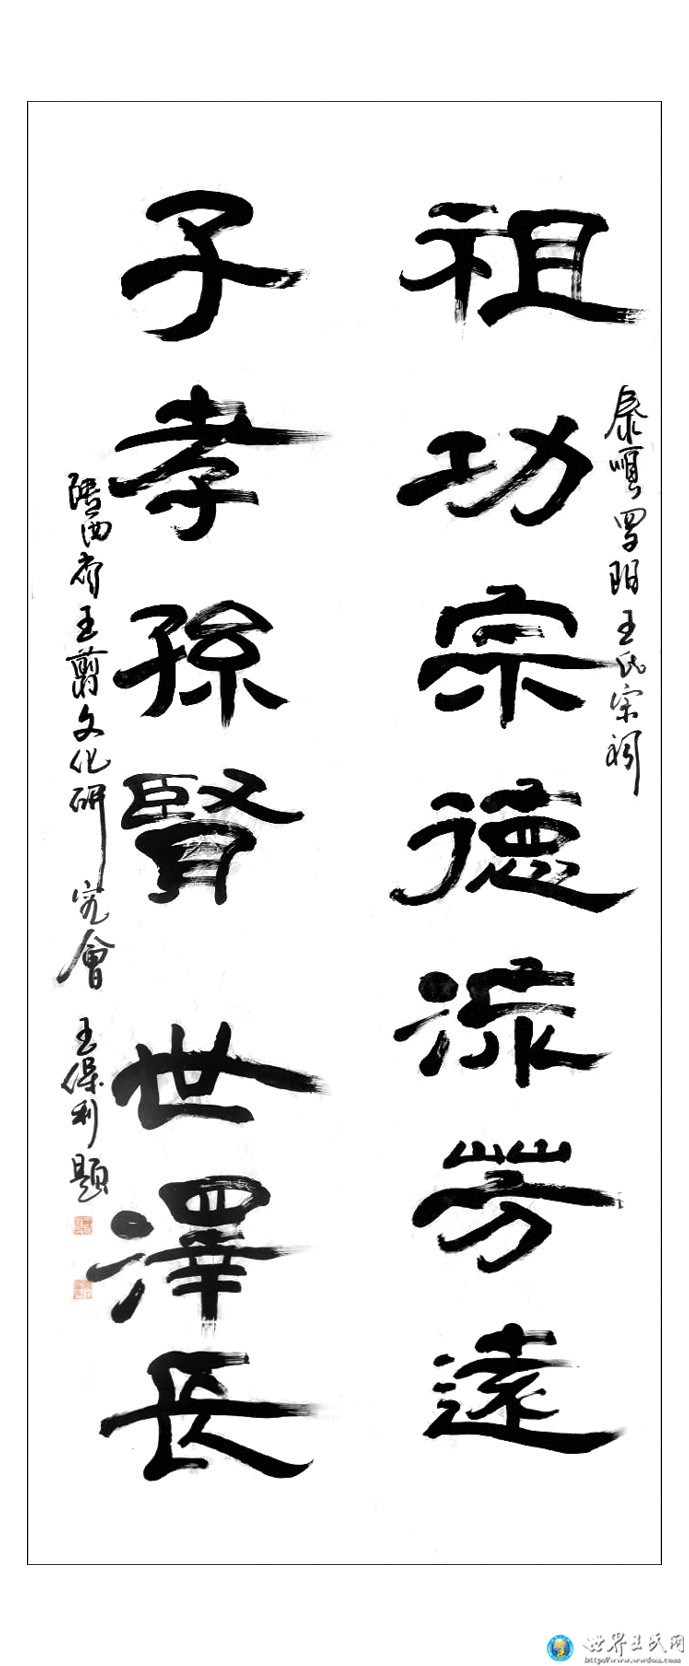 泰順罗阳王氏宗祠
祖功宗德流芳遠
子孝孫賢世澤長
陕西省王翦文化研究會 王保利題
世界王氏网